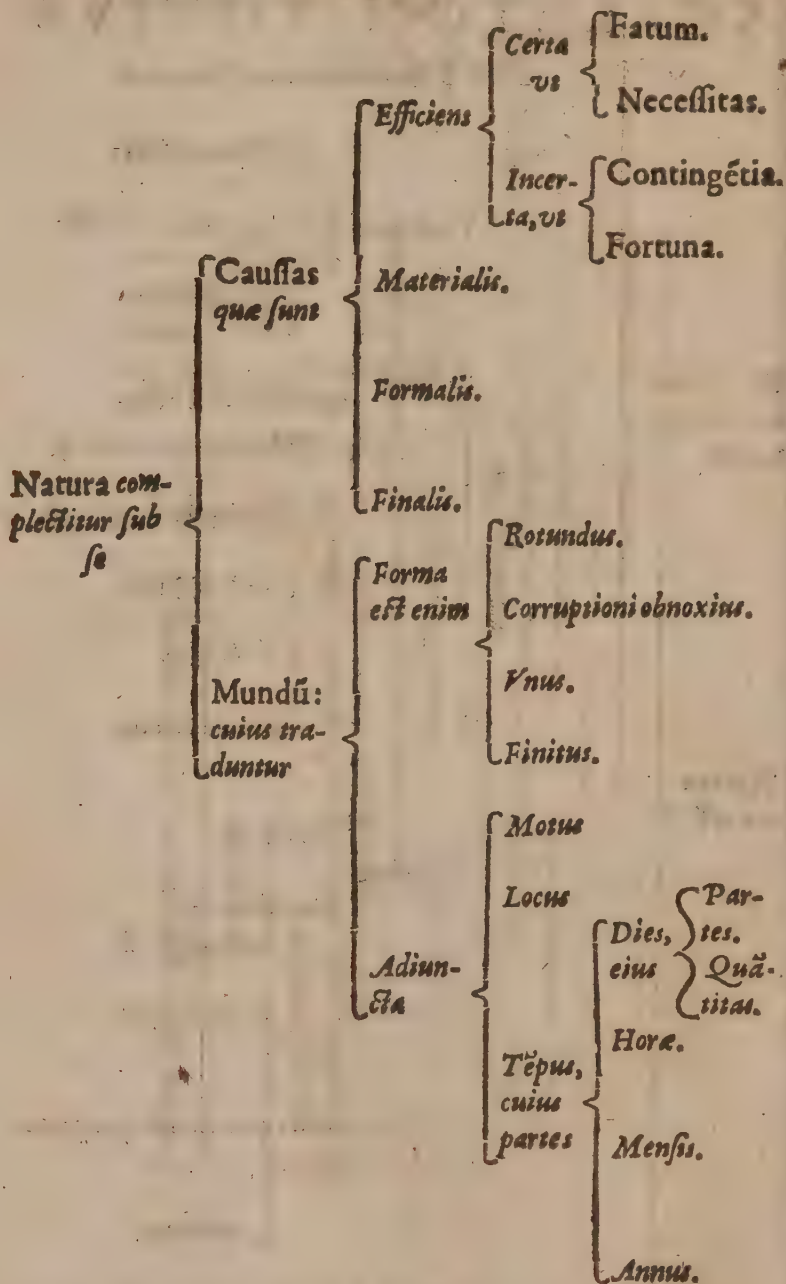 Natura com-
plectitur sub
se
Caussas
quæ sunt
Efficiens
Certa
vt
Fatum.
Necessitas.
Incer-
ta, vt
Contingẽtia.
Fortuna.
Materialis.
Formalis.
Finalis.
Mundũ:
cuius tra-
duntur
Forma
est enim
Rotundus.
Corruptioni obnoxius.
Vnus.
Finitus.
Adiun-
cta
Motus
Locus
Tẽpus,
cuius
partes
Dies,
eius
Par-
tes.
Quã-
titas.
Horæ.
Mensis.
Annus.